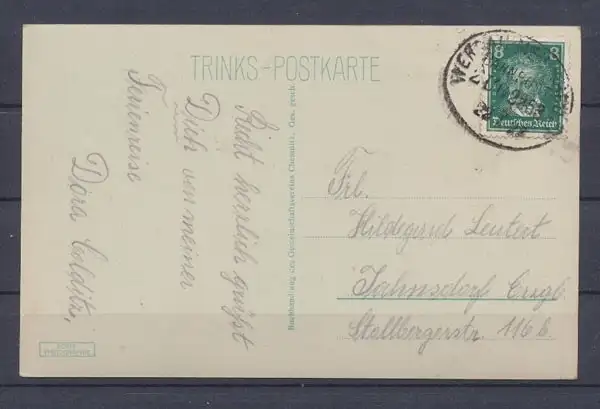 TRINKS-POSTKARTE
Recht herzlich grüßt
Dich von meiner
Ferienreise
Dora Colditz,
Buchhandlung des Gemeinschaftsvereins Chemnitz. Ges. gesch.
8 8
Deutsches Reich
Frl.
Hildegard Leutert
Jahnsdorf Erzgb.
Stollbergerstr. 116 b.
PHOTOGRAPHIE